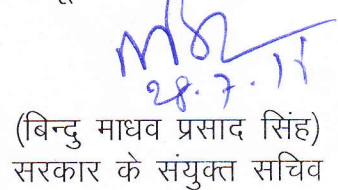 28.7.11
(बिन्दु माधव प्रसाद सिंह)
सरकार के संयुक्त सचिव